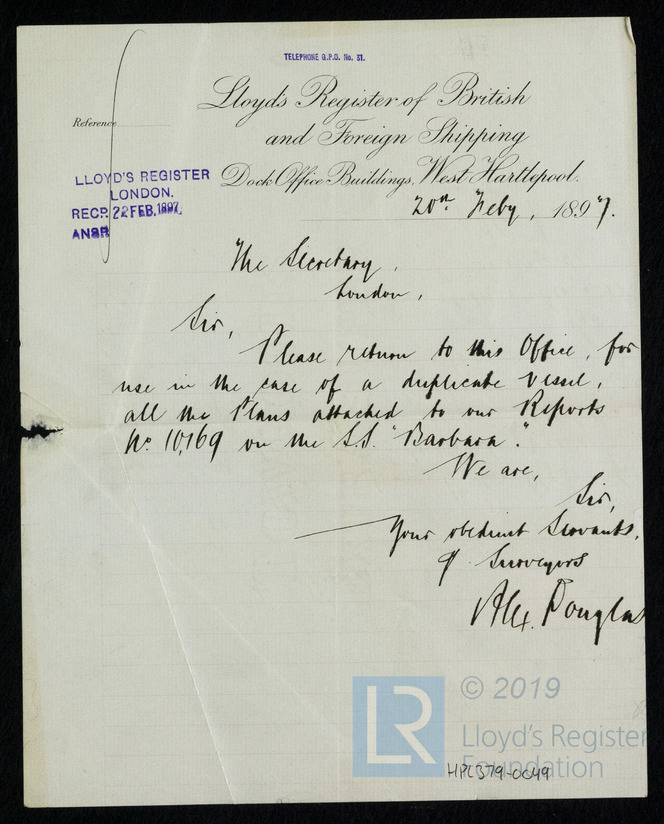 TELEPHONE G.P.O. No. 31.
Lloyd's Register of British
and Foreign Shipping
Reference
Dock Office Buildings, West Hartlepool.
LLOYD'S REGISTER
LONDON.
RECD. 22 FEB. 1897
ANSR
20th Feby, 1897.
The Secretary,
London,
Sir,
Please return to this Office, for
use in the case of a duplicate vessel,
all the Plans attached to our Reports
No. 10,169 on the S.S. "Barbara".
We are,
Sir,
Your obedient Servants,
Surveyors
Alex. Douglas
LR
© 2019
Lloyd's Register
Foundation
HPL379-0049